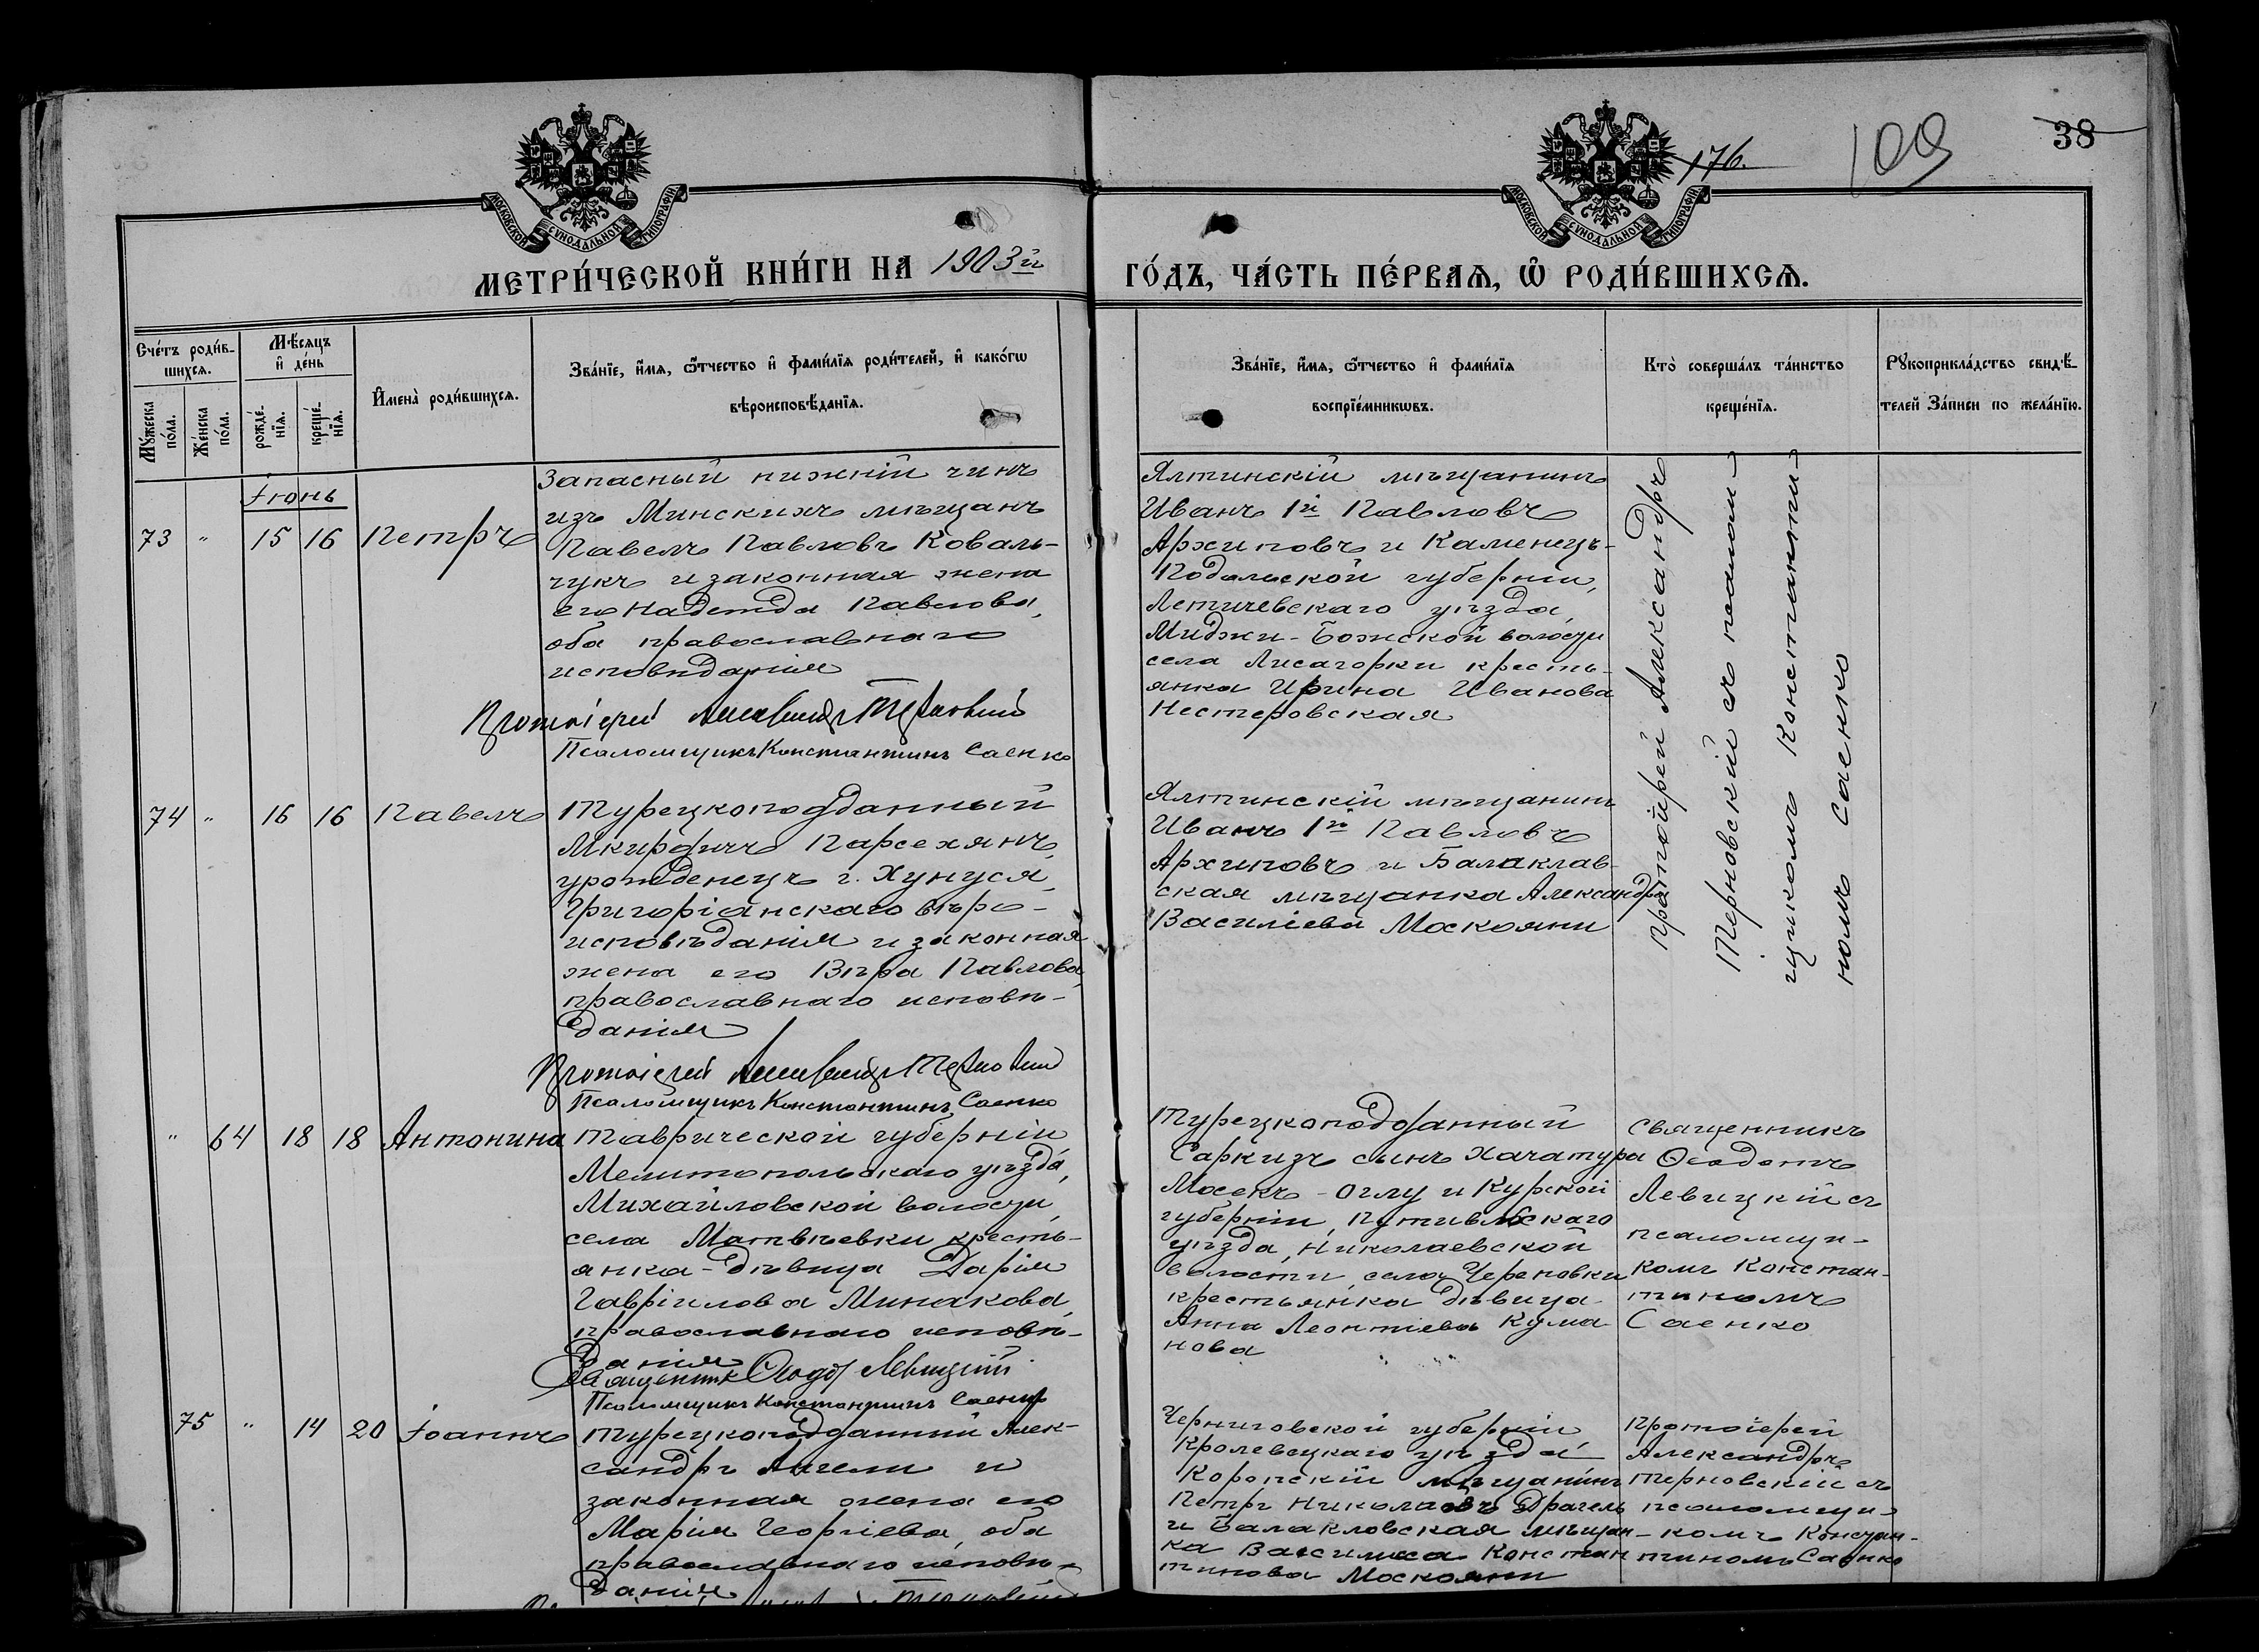 176.
109
38
МОСКОВСКОЙ СУНОДАЛЬНОЙ ТИПОГРАФІИ
МОСКОВСКОЙ СУНОДАЛЬНОЙ ТИПОГРАФІИ
МЕТРИ́ЧЕСКОЙ КНИ́ГИ НА 1903й
ГО́ДЪ, ЧА́СТЬ ПЕ́РВАѦ, Ѡ҆ РОДИ́ВШИХСѦ.
Сче́тъ роди́в-
шихсѧ.
Мꙋ́жеска
по́ла.
Же́нска
по́ла.
Мѣ́сѧцъ
и҆ де́нь
рожде́-
нїѧ.
креще́-
нїѧ.
И҆мена̀ роди́вшихсѧ.
Зва́нїе, и҆́мѧ, ѻ҆́тчество и҆ фами́лїѧ роди́телей, и҆ како́гѡ
вѣроисповѣ́данїѧ.
Зва́нїе, и҆́мѧ, ѻ҆́тчество и҆ фами́лїѧ
воспрїе́мникѡвъ.
Кто̀ соверша́лъ та́инство
креще́нїѧ.
Рꙋкоприкла́дство свидѣ́-
телей За́писи по жела́нїю.
Іюнь
73 " 15 16 Петръ
Запасный нижній чинъ
изъ Минскихъ мѣщанъ
Павелъ Павловъ Коваль-
чукъ и законная жена
его Надежда Павлова,
оба православнаго
исповѣданія
Протоіерей Александръ Терновскій
Псаломщикъ Константинъ Саенко
Ялтинскій мѣщанинъ
Иванъ 1й Павловъ
Архиповъ и Каменецъ-
Подольской губерніи,
Летичевскаго уѣзда,
Миджи-Божской волости
села Лисагорки кресть-
янка Ирина Иванова
Нестеровская
Протоіерей Александръ
Терновскій съ псалом-
щикомъ Константи-
номъ Саенко
74 " 16 16 Павелъ
Турецкоподданный
Мкирдичъ Парсехянъ,
урожденецъ г. Хунуся,
Григоріанскаго вѣро-
исповѣданія и законная
жена его Вѣра Павлова,
православнаго исповѣ-
данія
Протоіерей Александръ Терновскій
Псаломщикъ Константинъ Саенко
Ялтинскій мѣщанинъ
Иванъ 1й Павловъ
Архиповъ и Балаклав-
ская мѣщанка Александра
Василіева Москояни
" 64 18 18 Антонина
Таврической губерніи
Мелитопольскаго уѣзда,
Михайловской волости,
села Матвѣевки кресть-
янка-дѣвица Дарія
Гавріилова Минакова,
православнаго исповѣ-
данія
Священникъ Ѳеодотъ Левицкій
Псаломщикъ Константинъ Саенко
Турецкоподданный
Саркизъ сынъ Хачатура
Мосекъ-Оглу и Курской
губерніи, Путивльскаго
уѣзда, Николаевской
волости, села Череповки
крестьянка дѣвица
Анна Леонтіева Кума-
нова
Священникъ
Ѳеодотъ
Левицкій съ
псаломщи-
комъ Констан-
тиномъ
Саенко
75 " 14 20 Іоаннъ
Турецкоподданный Алек-
сандръ Ангели и
законная жена его
Марія Георгіева, оба
православнаго исповѣ-
данія
Черниговской губерніи
Кролевецкаго уѣзда
Коропскій мѣщанинъ
Петръ Николаевъ Драгель
и Балакловская мѣщан-
ка Василиса Констан
тинова Москояни
Протоіерей
Александръ
Терновскій съ
псаломщи-
комъ Констан-
тиномъ Саенко